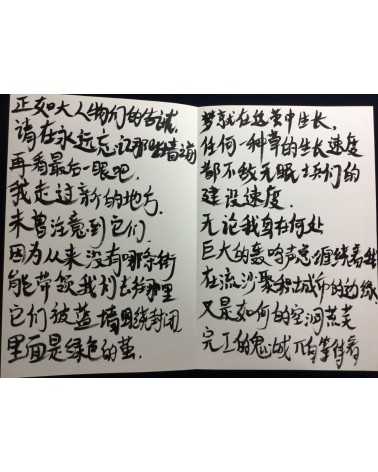 正如大人物们的告诫,
请在永远忘记那些青海
再看最后一眼吧.
我走过新的地方,
未曾注意到它们.
因为从来没有哪条街
能带领我们去往那里
它们被蓝墙围绕封闭
里面是绿色的茧.
梦就在这茧中生长,
任何一种草的生长速度
都不敌无眠士兵们的
建设速度.
无论我身在何处
巨大的轰鸣声总缠绕着我
在流沙聚积城市的边缘,
又是如何的空洞荒芜
完工的鬼城 等待着